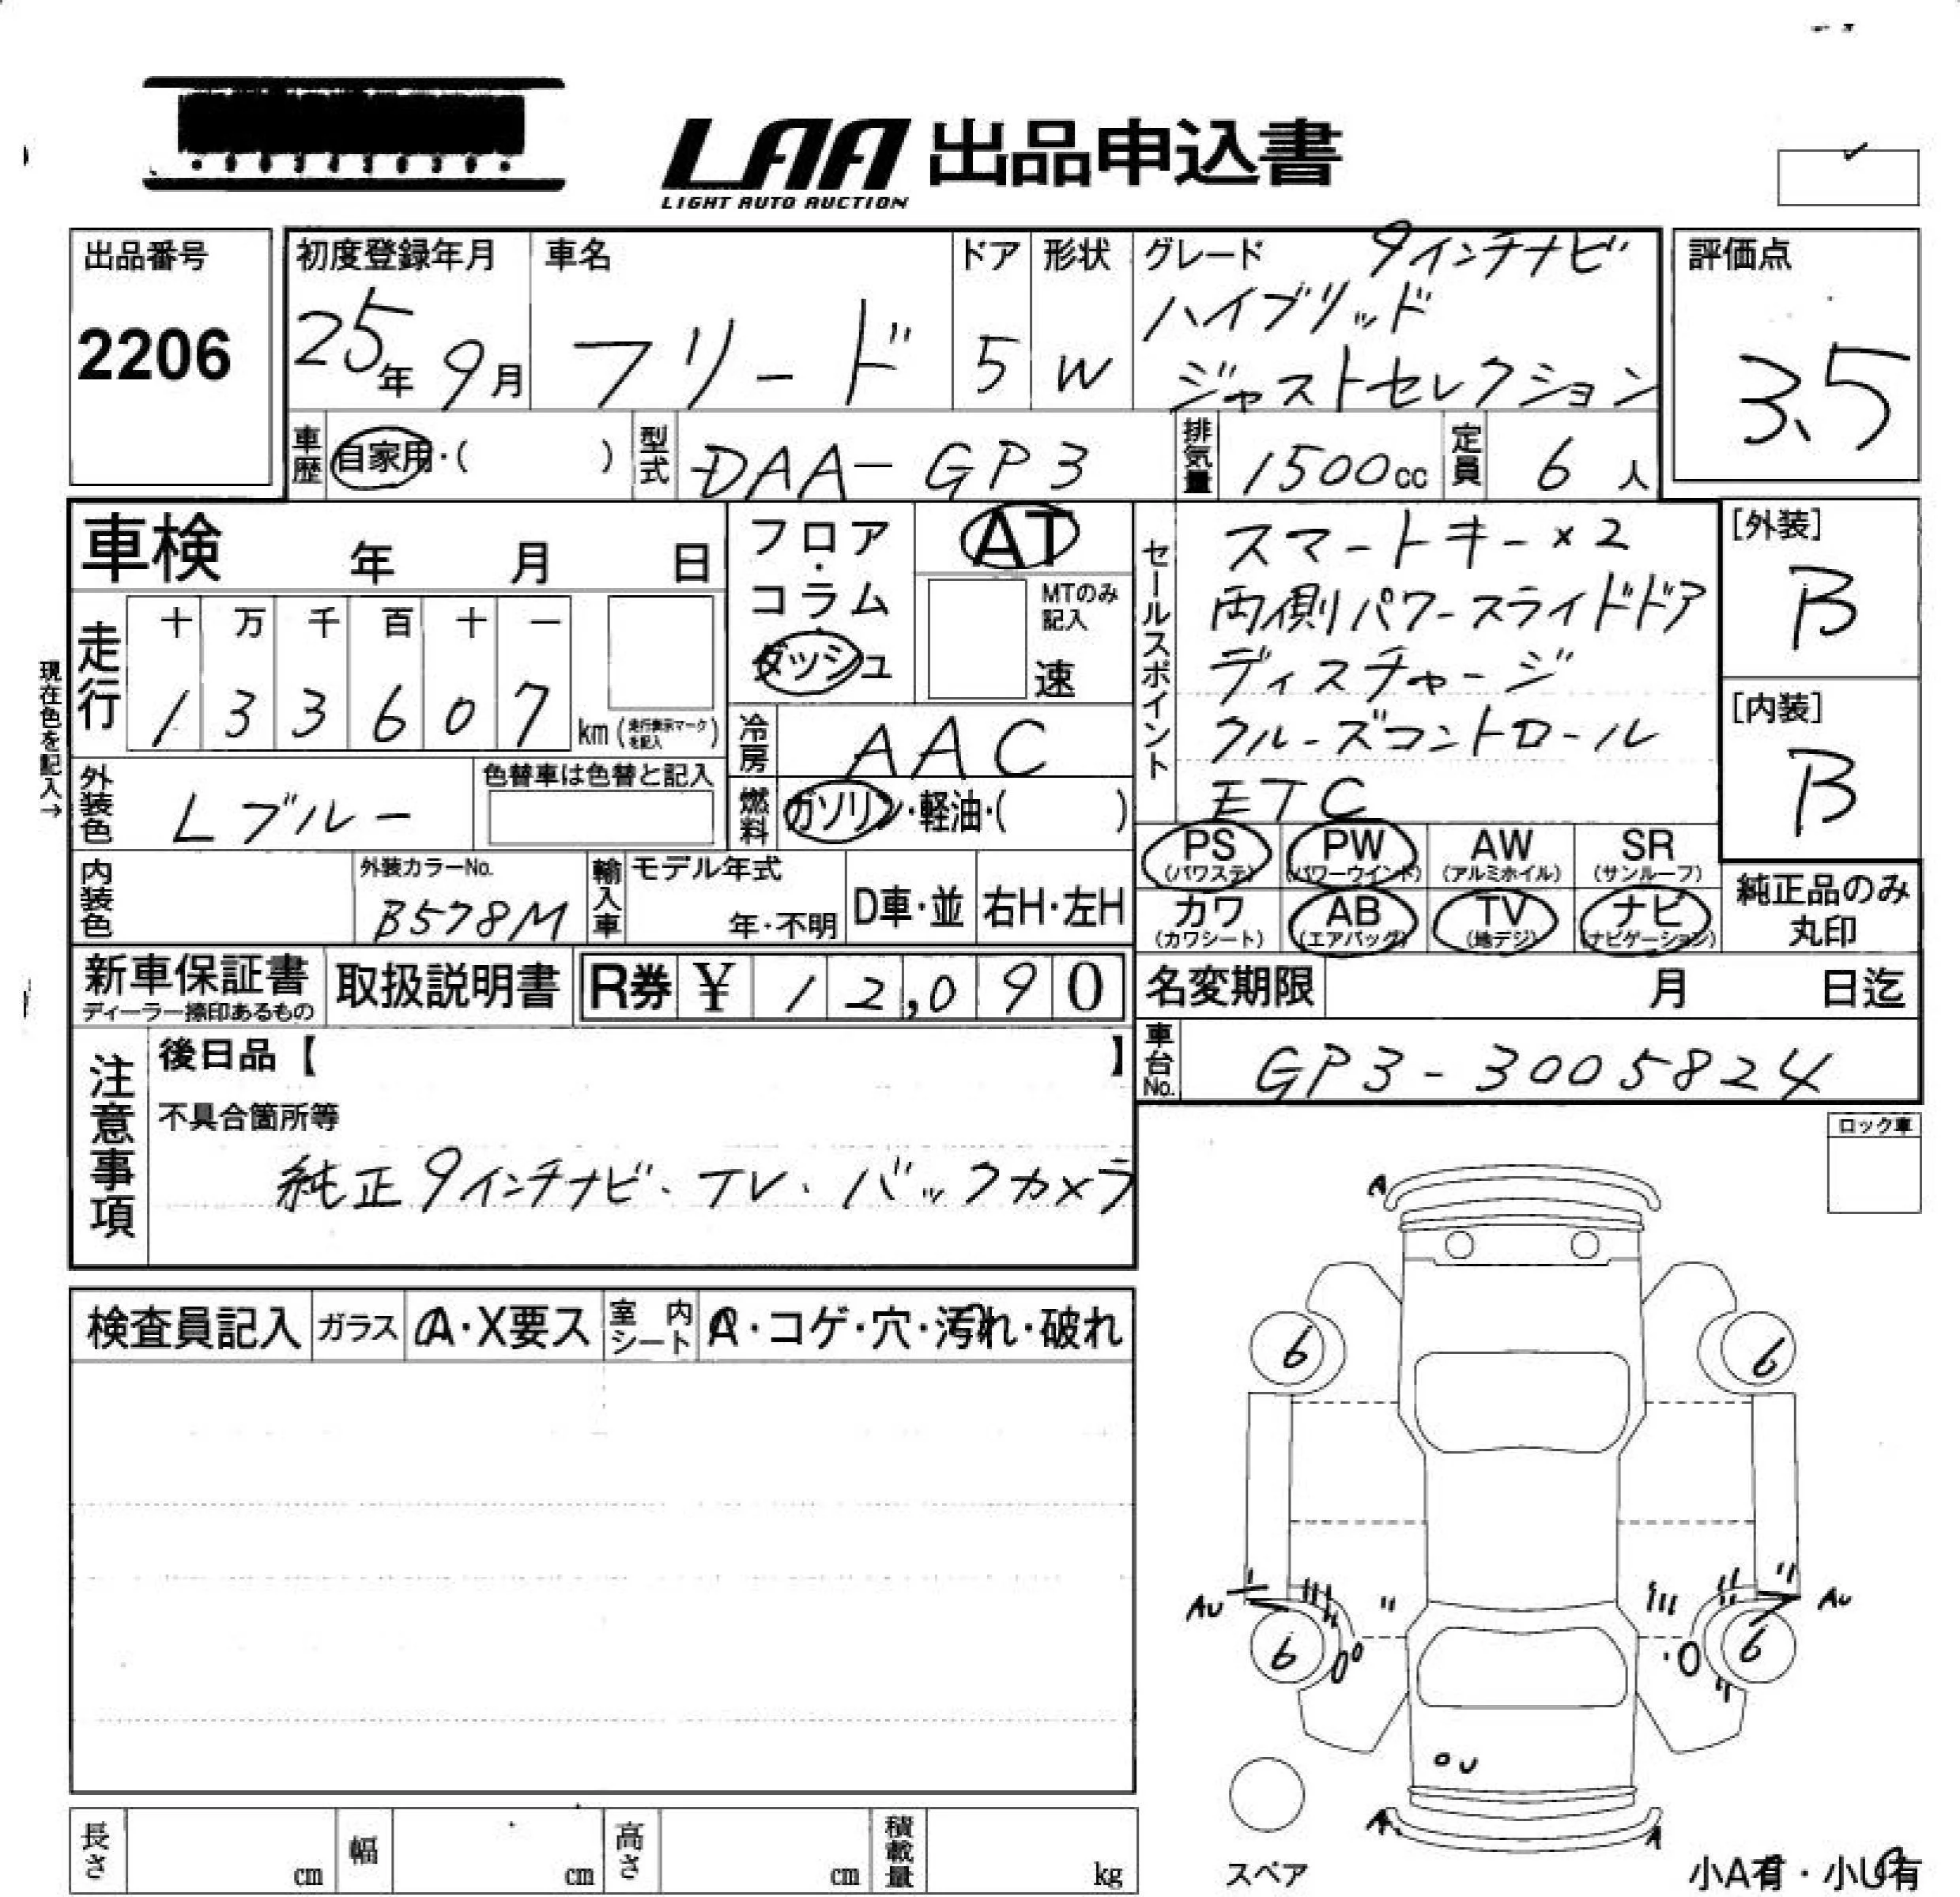 LAA 出品申込書
LIGHT AUTO AUCTION
出品番号
2206
初度登録年月
25年 9月
車名
フリード
ドア
5
形状
W
グレード
9インチナビ
ハイブリッド
ジャストセレクション
評価点
3.5
車歴
自家用・( )
型式
DAA-GP3
排気量
1500cc
定員
6人
車検 年 月 日
フロア・
コラム・
ダッシュ
AT
MTのみ
記入
速
セールスポイント
スマートキー×2
両側パワースライドドア
ディスチャージ
クルーズコントロール
ETC
[外装]
B
[内装]
B
現在色を記入→
走行
十 万 千 百 十 一
1 3 3 6 0 7
km(走行表示マークを記入)
冷房
AAC
外装色
Lブルー
色替車は色替と記入
燃料
ガソリン・軽油・( )
PS
(パワステ)
PW
(パワーウインド)
AW
(アルミホイル)
SR
(サンルーフ)
カワ
(カワシート)
AB
(エアバッグ)
TV
(地デジ)
ナビ
(ナビゲーション)
純正品のみ
丸印
内装色
外装カラーNo.
B578M
輸入車
モデル年式
年・不明
D車・並
右H・左H
新車保証書
ディーラー捺印あるもの
取扱説明書
R券 ¥ 12,090
名変期限 月 日迄
車台No.
GP3-3005824
注意事項
後日品【 】
不具合箇所等
純正9インチナビ・TV・バックカメラ
ロック車
検査員記入
ガラス
A・X要ス
室内
シート
A・コゲ・穴・汚れ・破れ
A
6
6
AU
AU
6
6
U
A
A
スペア
小A有・小U有
長さ cm
幅 cm
高さ cm
積載量 kg